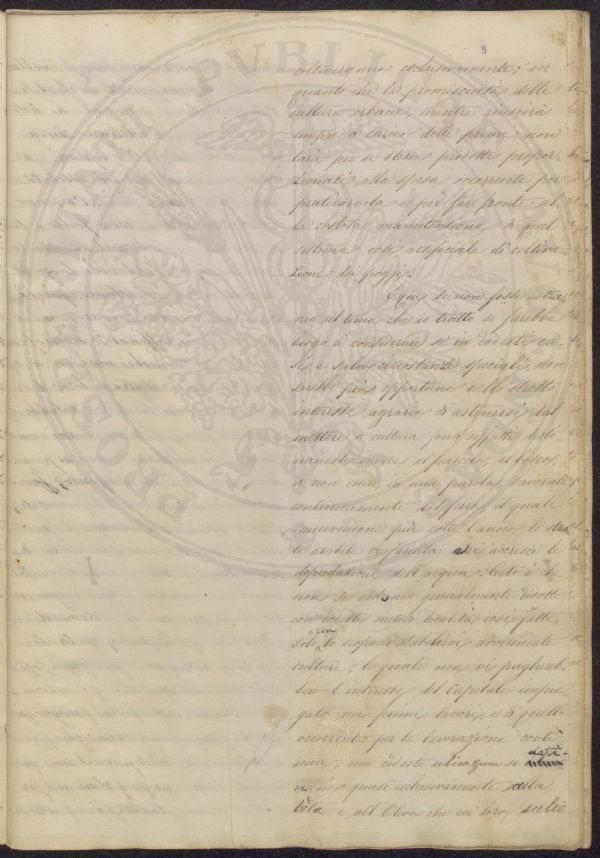 9
coltiveranno esclusivamente; in
quanto che la promiscuità delle
culture erbacee, mentre riuscirà
sempre a carico delle prime, non
darà per se stessa prodotti propor-
zionati, alla spesa occorrente per
praticarvela e per far fronte al
la costosa manutenzione di quel
sistema così artificiale di coltiva-
zione dei poggi.
E qui se non fosse estra
neo sul tema che io tratto si farebbe
luogo a considerare se in codesti ca-
si, e salvo circostanze speciali, non
sarebbe più opportuno nello stretto
interesse agrario di astenersi dal
mettere a cultura fondi siffatti desti
nandoli invece al pascolo, al bosco,
a non esser, in una parola, lavorati
continuamente dal ferro, il quale
smuovendone più volte l'anno lo stra-
to arabile vi facilita ed accresce le
depredazioni dell'acqua. Certo è che
non si vedono generalmente ridotte
con codesti metodi località così fatte,
solo con lo scopo di stabilirvi avvicendate
culture, le quali non vi pagherebbero
l'interesse del Capitale impie
gato nei primi lavori, e di quello
occorrente per la lavorazione conti
nua; ma codeste ubicazioni si desti-
nano quasi esclusivamente alla
Vite e all'Olivo, che coi loro scelti
PROSPERITATI PVBLICAE